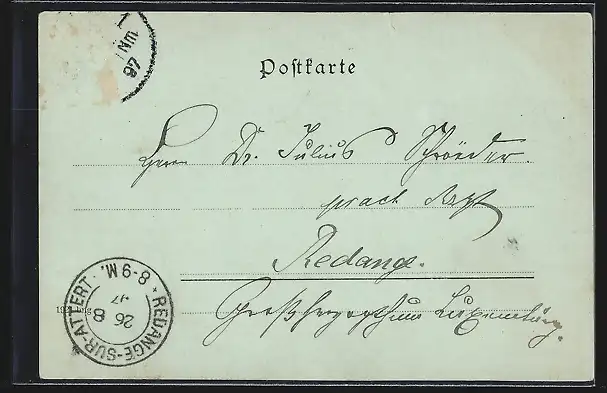 Nm
97
Postkarte
Herrn Dr. Julius Schroeder.
pract Arzt
Redange.
Großherzogthum Luxemburg.
REDANGE-SUR-ATTERT · 8-9 M. *
26
8
97